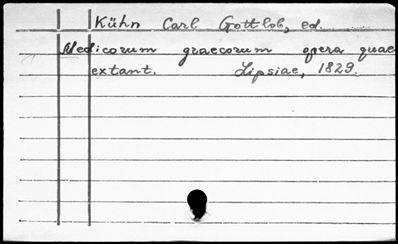 Kühn Carl Gottlob, ed.
Medicorum graecorum opera quae
extant. Lipsiae, 1829.